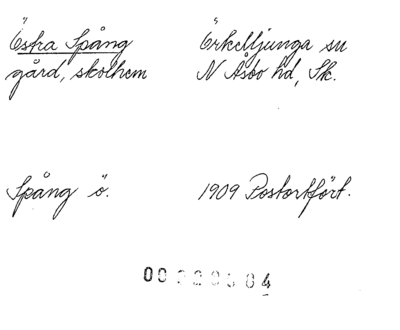 Östra Spång
gård, skolhem
Örkelljunga sn
N Åsbo hd, Sk.
Spång ö.
1909 Postortfört.